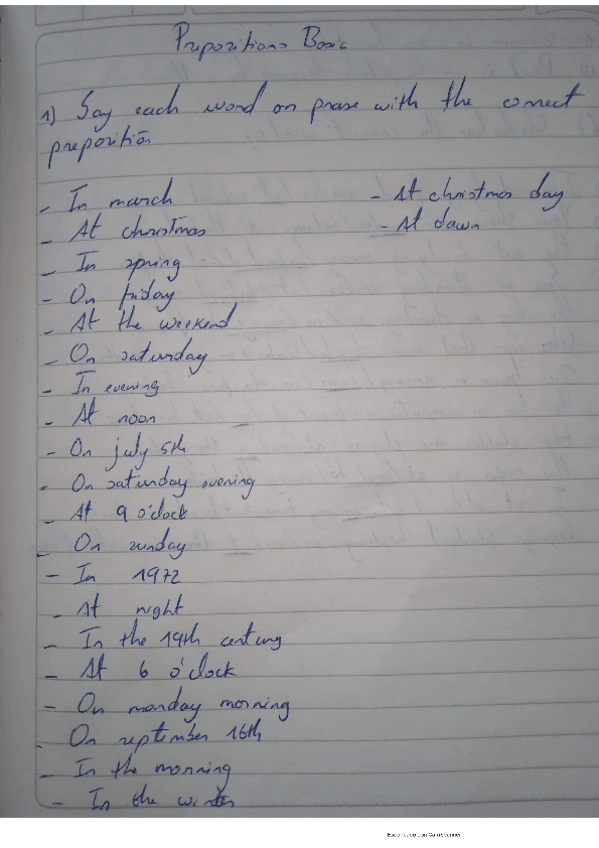 Prepositions Basic
1) Say each word on prase with the correct
preposition
- In march
- At christmas
- In spring
- On friday
- At the weekend
- On saturday
- In evening
- At noon
- On july 5th
- On saturday evening
- At 9 o'clock
- On sunday
- In 1972
- At night
- In the 19th century
- At 6 o'clock
- On monday morning
- On september 16th
- In the morning
- In the winter
- At christmas day
- At dawn